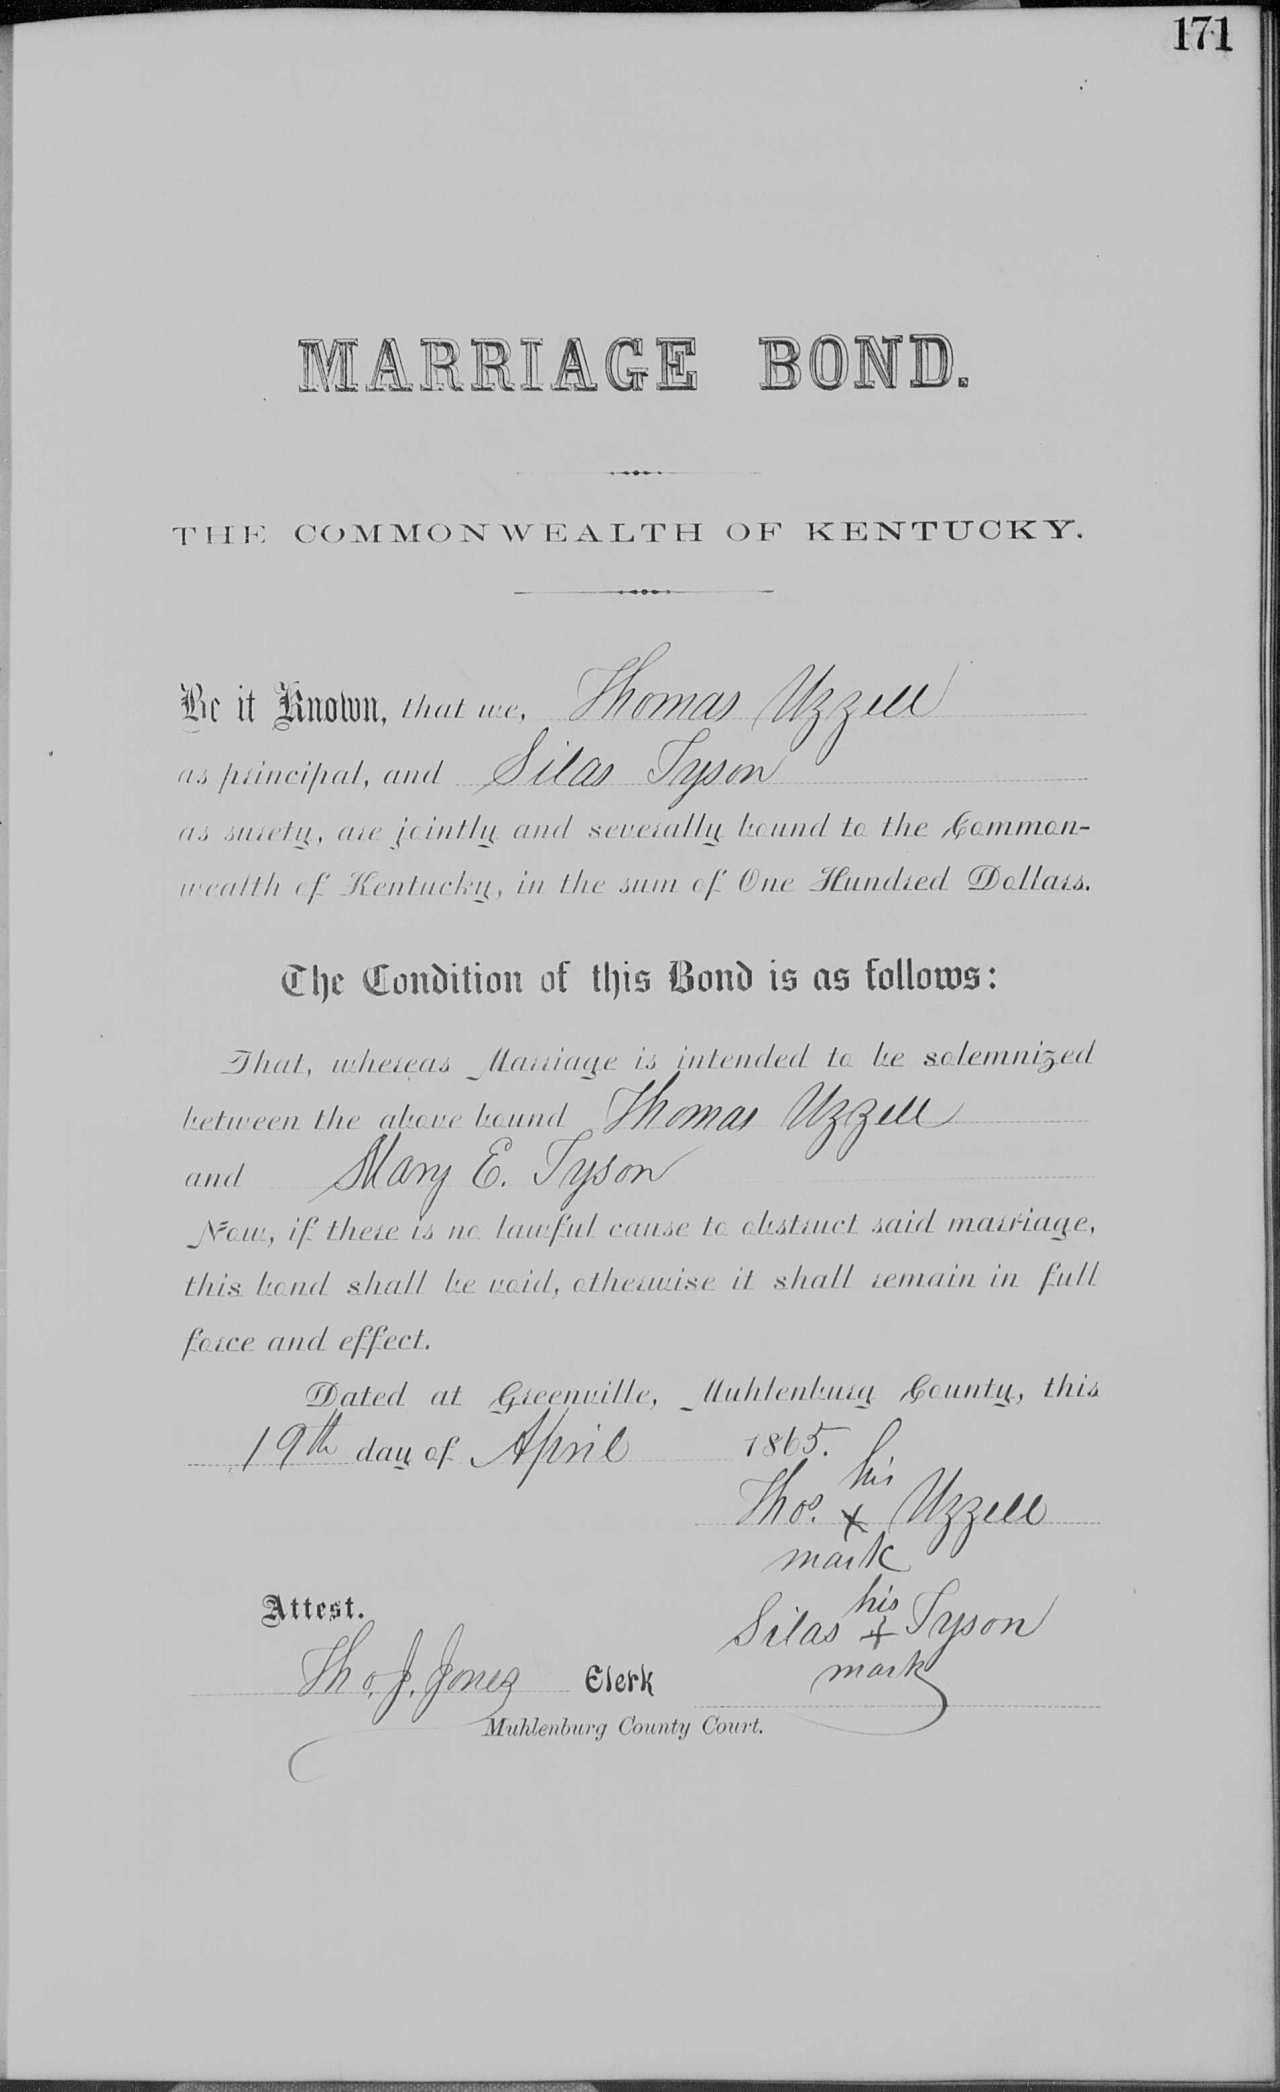 171
MARRIAGE BOND.
THE COMMONWEALTH OF KENTUCKY.
Be it Known, that we, Thomas Uzzell
as principal, and Silas Tyson
as surety, are jointly and severally bound to the Common-
wealth of Kentucky, in the sum of One Hundred Dollars.
The Condition of this Bond is as follows:
That, whereas Marriage is intended to be solemnized
between the above bound Thomas Uzzell
and Mary E. Tyson
Now, if there is no lawful cause to obstruct said marriage,
this bond shall be void, otherwise it shall remain in full
force and effect.
Dated at Greenville, Muhlenburg County, this
19th day of April 1865.
his
Thos. x Uzzell
mark
Attest.
his
Silas + Tyson
mark
Tho. J. Jones Clerk
Muhlenburg County Court.